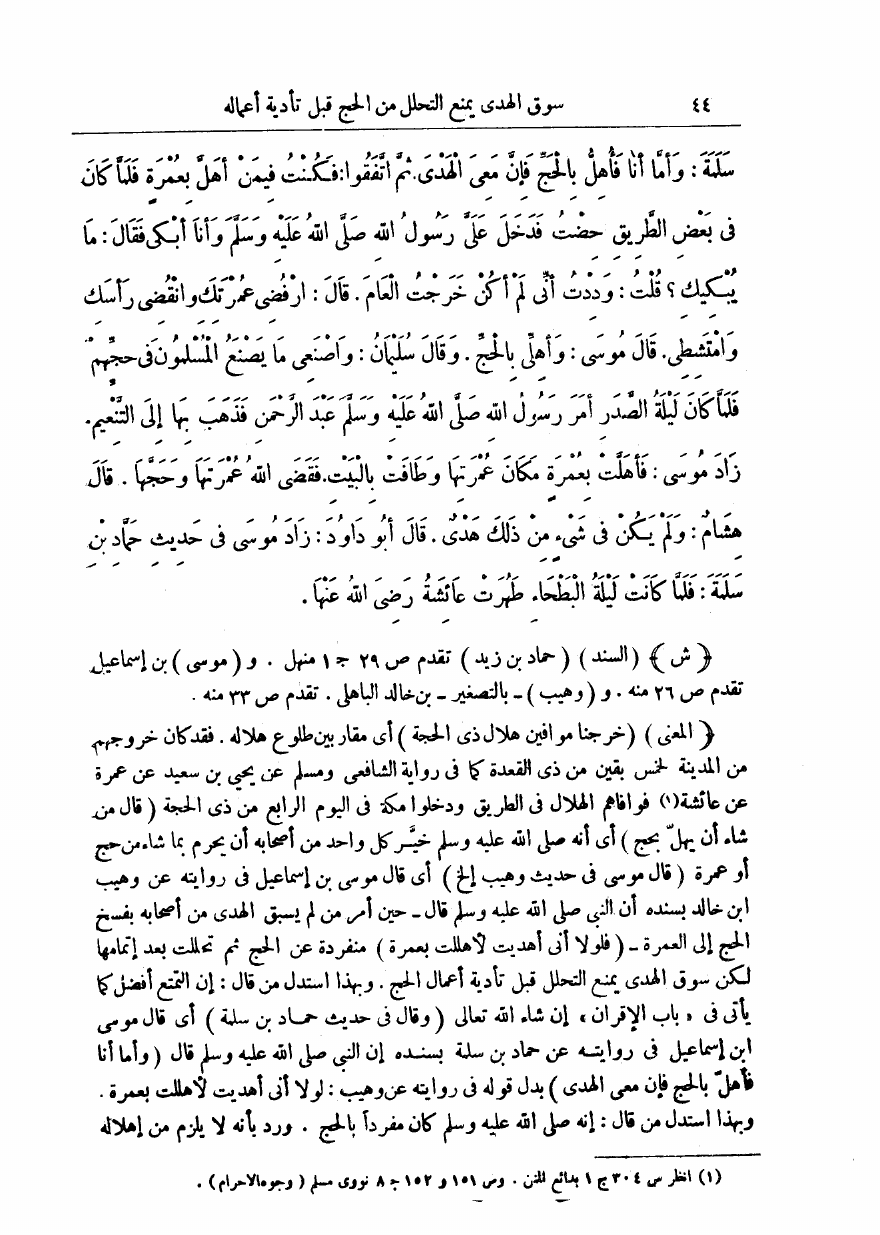 ٤٤ سوق الهدى يمنع التحلل من الحج قبل تأدية أعماله
سَلَمَةَ : وَأَمَّا أَنَا فَأُهِلُّ بِالْحَجِّ فَإِنَّ مَعِىَ الْهَدْىَ. ثُمَّ اتَّفَقُوا: فَكُنْتُ فِيمَنْ أَهَلَّ بِعُمْرَةٍ فَلَمَّا كَانَ
فِى بَعْضِ الطَّرِيقِ حِضْتُ فَدَخَلَ عَلَىَّ رَسُولُ اللهِ صَلَّى اللهُ عَلَيْهِ وَسَلَّمَ وَأَنَا أَبْكِى فَقَالَ: مَا
يُبْكِيكِ ؟ قُلْتُ : وَدِدْتُ أَنِّى لَمْ أَكُنْ خَرَجْتُ الْعَامَ . قَالَ : ارْفُضِى عُمْرَتَكِ وانْقُضِى رَأْسَكِ
وَامْتَشِطِى. قَالَ مُوسَى : وَأَهِلِّى بِالْحَجِّ . وَقَالَ سُلَيْمَانُ : وَاصْنَعِى مَا يَصْنَعُ الْمُسْلِمُونَ فِى حَجِّهِمْ
فَلَمَّا كَانَ لَيْلَةُ الصَّدَرِ أَمَرَ رَسُولُ اللهِ صَلَّى اللهُ عَلَيْهِ وَسَلَّمَ عَبْدَ الرَّحْمَنِ فَذَهَبَ بِهَا إِلَى التَّنْعِيمِ.
زَادَ مُوسَى : فَأَهَلَّتْ بِعُمْرَةٍ مَكَانَ عُمْرَتِهَا وَطَافَتْ بِالْبَيْتِ. فَقَضَى اللهُ عُمْرَتَهَا وَحَجَّهَا . قَالَ
هِشَامٌ : وَلَمْ يَكُنْ فِى شَىْءٍ مِنْ ذَلِكَ هَدْىٌ . قَالَ أَبُو دَاوُدَ : زَادَ مُوسَى فِى حَدِيثِ حَمَّادِ بْنِ
سَلَمَةَ : فَلَمَّا كَانَتْ لَيْلَةُ الْبَطْحَاءِ طَهُرَتْ عَائِشَةُ رَضِىَ اللهُ عَنْهَا .
﴿ ش ﴾ ( السند ) ( حماد بن زيد ) تقدم ص ٢٩ ج ١ منهل . و ( موسى ) بن إسماعيل
تقدم ص ٢٦ منه . و ( وهيب ) ـ بالتصغير ـ بن خالد الباهلى . تقدم ص ٣٣ منه .
﴿ المعنى ﴾ ( خرجنا موافين هلال ذى الحجة ) أى مقاربين طلوع هلاله . فقد كان خروجهم
من المدينة لخمس بقين من ذى القعدة كما فى رواية الشافعى ومسلم عن يحيى بن سعيد عن عمرة
عن عائشة (١) فوافاهم الهلال فى الطريق ودخلوا مكة فى اليوم الرابع من ذى الحجة ( قال من
شاء أن يهلّ بحج ) أى أنه صلى الله عليه وسلم خيَّر كل واحد من أصحابه أن يحرم بما شاء من حج
أو عمرة ( قال موسى فى حديث وهيب إلخ ) أى قال موسى بن إسماعيل فى روايته عن وهيب
ابن خالد بسنده أن النبى صلى الله عليه وسلم قال ـ حين أمر من لم يسق الهدى من أصحابه بفسخ
الحج إلى العمرة ـ ( فلولا أنى أهديت لأهللت بعمرة ) منفردة عن الحج ثم تحللت بعد إتمامها
لكن سوق الهدى يمنع التحلل قبل تأدية أعمال الحج . وبهذا استدل من قال : إن التمتع أفضل كما
يأتى فى « باب الإقران » إن شاء الله تعالى ( وقال فى حديث حماد بن سلمة ) أى قال موسى
ابن إسماعيل فى روايته عن حماد بن سلمة بسنده إن النبى صلى الله عليه وسلم قال ( وأما أنا
فأهلّ بالحج فإن معى الهدى ) بدل قوله فى روايته عن وهيب : لولا أنى أهديت لأهللت بعمرة .
وبهذا استدل من قال : إنه صلى الله عليه وسلم كان مفرداً بالحج . ورد بأنه لا يلزم من إهلاله
(١) انظر ص ٣٠٤ ج ١ بدائع المنن . وص ١٥١ و ١٥٢ ج ٨ نووى مسلم ( وجوه الاحرام ) .